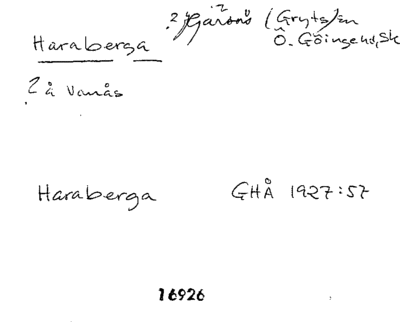 (Gryts) sn
Haraberga Ö. Göinge hd, Sk
? å Vanås
Haraberga GHÅ 1927:57
16926